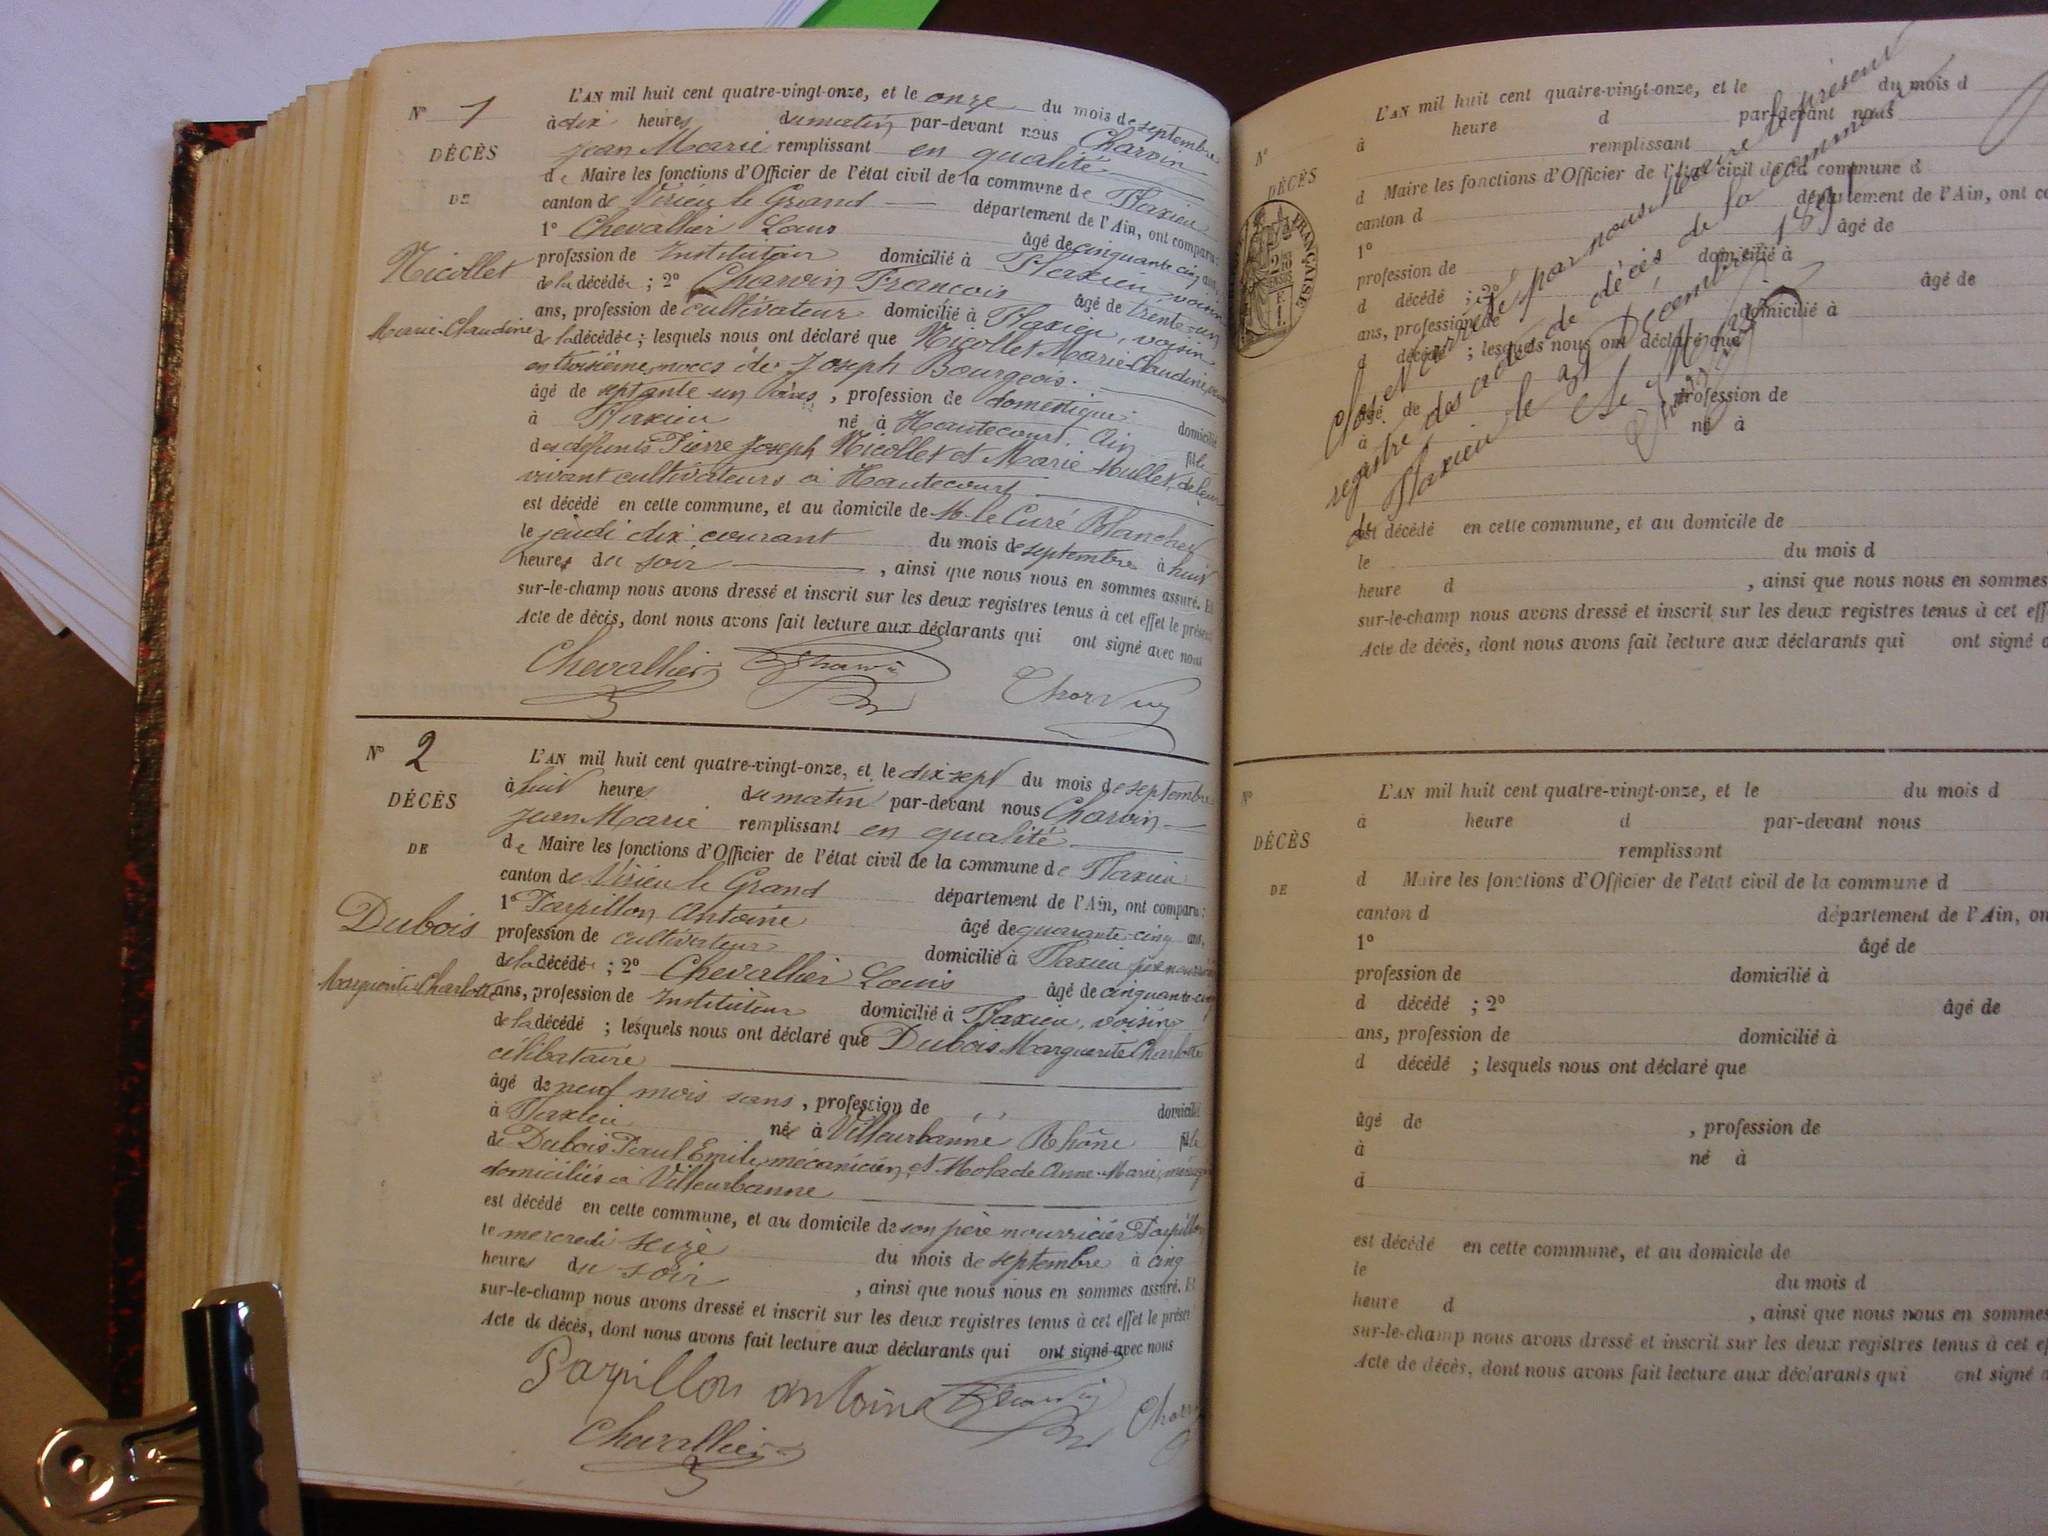 N° 1
DÉCÈS
DE
Nicollet
Marie-Claudine
L'AN mil huit cent quatre-vingt-onze, et le onze du mois de septembre
à dix heures du matin par-devant nous Charvin
Jean Marie remplissant en qualité
de Maire les fonctions d'Officier de l'état civil de la commune de Flaxieu
canton de Virieu le Grand département de l'Ain, ont comparu:
1° Chevallier Louis âgé de cinquante cinq ans,
profession de Instituteur domicilié à Flaxieu, voisin
de la décédée ; 2° Charvin François âgé de trente-un
ans, profession de cultivateur domicilié à Flaxieu, voisin
de la décédée ; lesquels nous ont déclaré que Nicollet Marie-Claudine,
en troisième noces de Joseph Bourgeois.
âgé de septante un ans, profession de domestique domicilié
à Flaxieu né à Hautecourt, Ain fille
des défunts Pierre Joseph Nicollet et Marie Mullet, de leur
vivant cultivateurs à Hautecourt
est décédé en cette commune, et au domicile de M. le Curé Blanchet
le jeudi dix courant du mois de septembre à huit
heures du soir , ainsi que nous nous en sommes assuré. Et
sur-le-champ nous avons dressé et inscrit sur les deux registres tenus à cet effet le présent
Acte de décès, dont nous avons fait lecture aux déclarants qui ont signé avec nous
Chevallier Charvin Charvin
N° 2
DÉCÈS
DE
Dubois
Marguerite Charlotte
L'AN mil huit cent quatre-vingt-onze, et le dix-sept du mois de septembre
à huit heures du matin par-devant nous Charvin
Jean Marie remplissant en qualité
de Maire les fonctions d'Officier de l'état civil de la commune de Flaxieu
canton de Virieu le Grand département de l'Ain, ont comparu:
1° Parpillon Antoine âgé de quarante-cinq ans,
profession de cultivateur domicilié à Flaxieu père nourricier
de la décédée ; 2° Chevallier Louis âgé de cinquante-cinq
ans, profession de Instituteur domicilié à Flaxieu, voisin
de la décédé ; lesquels nous ont déclaré que Dubois Marguerite Charlotte
célibataire
âgé de neuf mois sans , profession de domicilié
à Flaxieu née à Villeurbanne Rhône fille
de Dubois Paul Emile, mécanicien, et Molade Anne-Marie,
domiciliés à Villeurbanne
est décédé en cette commune, et au domicile de son père nourricier Parpillon
le mercredi seize du mois de septembre à cinq
heures du soir , ainsi que nous nous en sommes assuré. Et
sur-le-champ nous avons dressé et inscrit sur les deux registres tenus à cet effet le présent
Acte de décès, dont nous avons fait lecture aux déclarants qui ont signé avec nous
Parpillon antoine Charvin
Chevallier
N°
DÉCÈS
DE
FRANÇAISE
L'AN mil huit cent quatre-vingt-onze, et le du mois d
à heure d par-devant nous
remplissant
d Maire les fonctions d'Officier de l'état civil de la commune d
canton d département de l'Ain, ont
1° âgé de
profession de domicilié à
d décédé ; 2° âgé de
ans, profession de domicilié à
d décédé ; lesquels nous ont déclaré que
âgé de profession de
à né à
d
est décédé en cette commune, et au domicile de
le du mois d
heure d , ainsi que nous nous en sommes
sur-le-champ nous avons dressé et inscrit sur les deux registres tenus à cet
Acte de décès, dont nous avons fait lecture aux déclarants qui ont signé
Clos et arrêté par nous Maire le présent
registre des actes de décès de la commune
de Flaxieu le 31 Décembre 1891
Le Maire
N°
DÉCÈS
DE
L'AN mil huit cent quatre-vingt-onze, et le du mois d
à heure d par-devant nous
remplissant
d Maire les fonctions d'Officier de l'état civil de la commune d
canton d département de l'Ain,
1° âgé de
profession de domicilié à
d décédé ; 2° âgé de
ans, profession de domicilié à
d décédé ; lesquels nous ont déclaré que
âgé de , profession de
à né à
d
est décédé en cette commune, et au domicile de
le du mois d
heure d , ainsi que nous nous en sommes
sur-le-champ nous avons dressé et inscrit sur les deux registres tenus à cet
Acte de décès, dont nous avons fait lecture aux déclarants qui ont signé